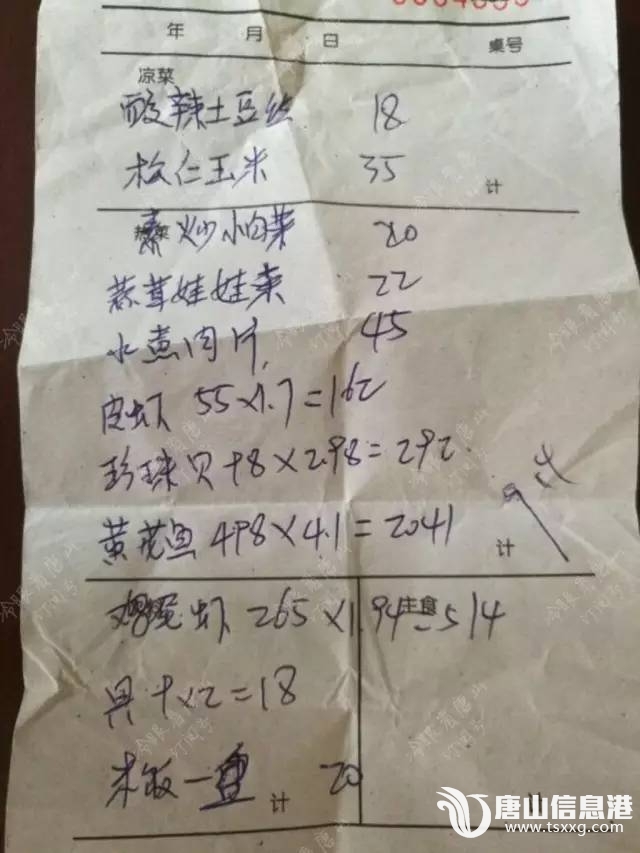 年 月 日 桌号
凉菜
酸辣土豆丝 18
松仁玉米 35
计
素炒小白菜 20
蒜茸娃娃菜 22
水煮肉片 45
皮虾 55×1.7=162
珍珠贝 98×2.98=292
黄花鱼 498×4.1=2041
计
虾 265×1.94=514
主食
×2=18
米饭一 20
计
计
唐山信息港
www.tsxxg.com